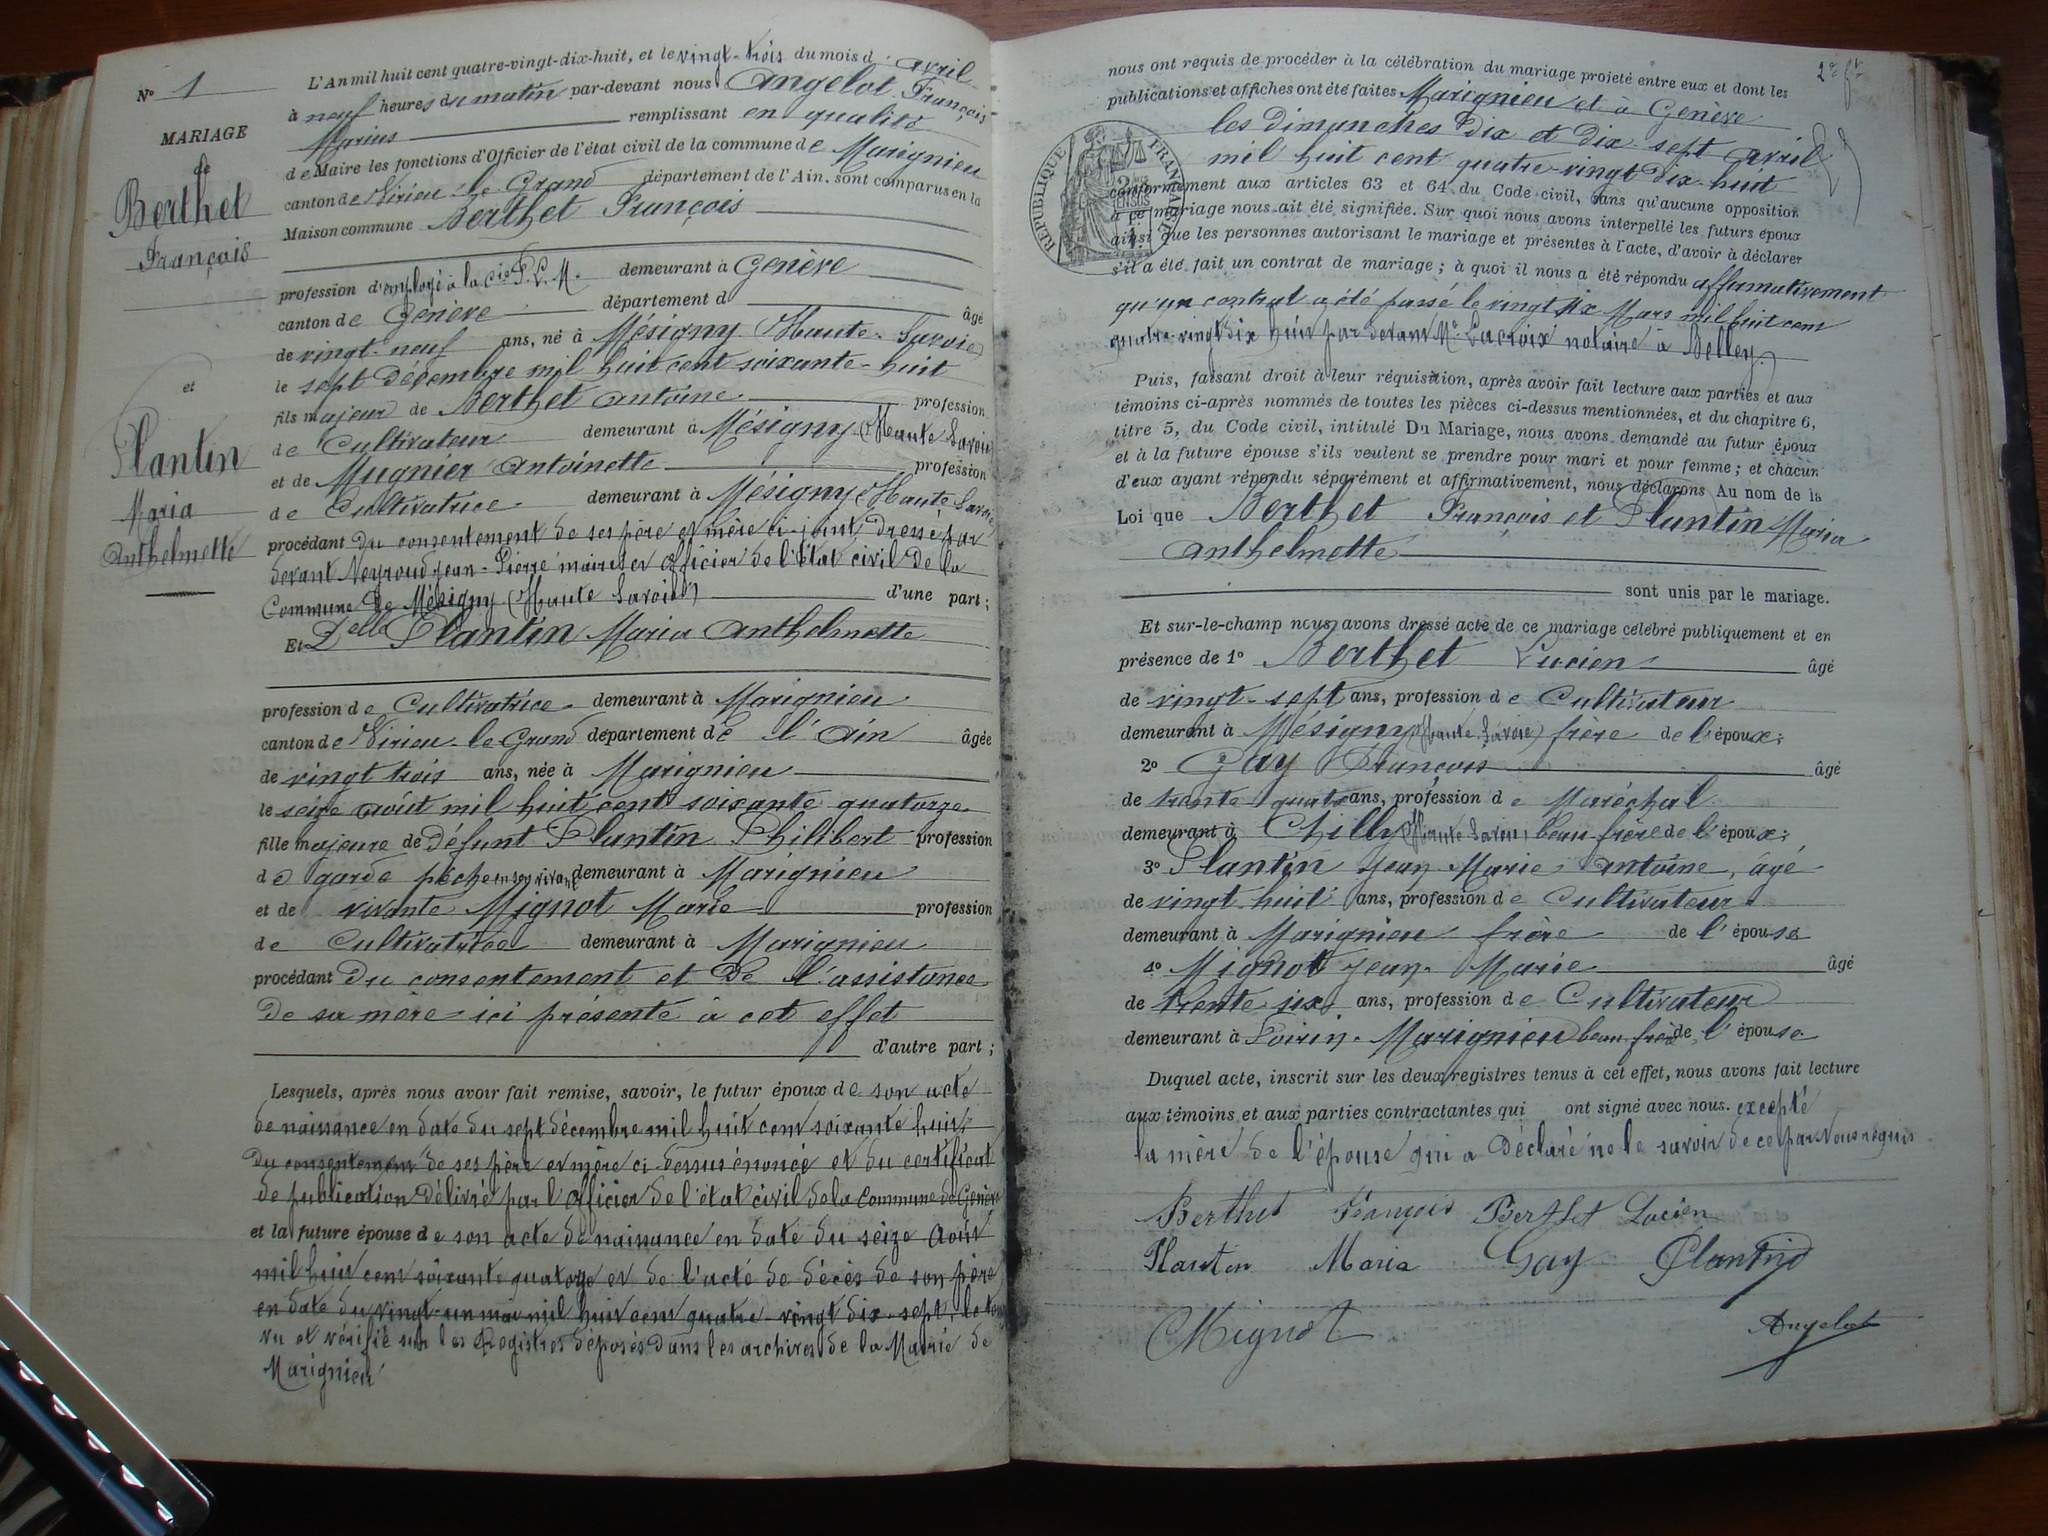 No 1
MARIAGE
de
Berthet
François
et
Plantin
Maria
Anthelmette
L'An mil huit cent quatre-vingt-dix-huit, et le vingt-trois du mois d'avril
à neuf heures du matin par-devant nous Angelot François
Marius remplissant en qualité
de Maire les fonctions d'Officier de l'état civil de la commune de Marignieu
canton de Virieu-le-Grand département de l'Ain, sont comparus en la
Maison commune Berthet François
profession d'employé à la Cie P.L.M. demeurant à Genève
canton de Genève département d âgé
de vingt-neuf ans, né à Mésigny Haute-Savoie
le sept décembre mil huit cent soixante-huit
fils majeur de Berthet Antoine profession
de Cultivateur demeurant à Mésigny (Haute Savoie
et de Mugnier Antoinette profession
de Cultivatrice demeurant à Mésigny (Haute Savoie
procédant du consentement de ses père et mère ci-joint, dressé par
devant Neyroud Jean-Pierre maire et officier de l'état civil de la
Commune de Mésigny (Haute Savoie) d'une part;
Et Delle Plantin Maria Anthelmette
profession de Cultivatrice demeurant à Marignieu
canton de Virieu-le-Grand département de l'Ain âgée
de vingt trois ans, née à Marignieu
le seize août mil huit cent soixante quatorze
fille majeure de défunt Plantin Philibert profession
de garde pêche en son vivant demeurant à Marignieu
et de vivante Mignot Marie profession
de Cultivatrice demeurant à Marignieu
procédant du consentement et de l'assistance
de sa mère ici présente à cet effet
d'autre part;
Lesquels, après nous avoir fait remise, savoir, le futur époux de son acte
de naissance en date du sept décembre mil huit cent soixante huit,
du consentement de ses père et mère ci-dessus énoncé et du certificat
de publication délivré par l'officier de l'état civil de la Commune de Genève
et la future épouse de son acte de naissance en date du seize Août
mil huit cent soixante quatorze et de l'acte de décès de son père
en date du vingt-un mai mil huit cent quatre-vingt dix-sept, le tout
vu et vérifié sur les Registres déposés dans les archives de la Mairie de
Marignieu
nous ont requis de procéder à la célébration du mariage projeté entre eux et dont les
publications et affiches ont été faites Marignieu et à Genève
les dimanches dix et dix-sept avril
mil huit cent quatre-vingt dix-huit
RÉPUBLIQUE FRANÇAISE
conformément aux articles 63 et 64 du Code civil, sans qu'aucune opposition
à ce mariage nous ait été signifiée. Sur quoi nous avons interpellé les futurs époux
ainsi que les personnes autorisant le mariage et présentes à l'acte, d'avoir à déclarer
s'il a été fait un contrat de mariage; à quoi il nous a été répondu affirmativement
qu'un contrat a été passé le vingt six Mars mil huit cent
quatre-vingt dix huit par devant Me Lacroix notaire à Belley.
Puis, faisant droit à leur réquisition, après avoir fait lecture aux parties et aux
témoins ci-après nommés de toutes les pièces ci-dessus mentionnées, et du chapitre 6,
titre 5, du Code civil, intitulé Du Mariage, nous avons demandé au futur époux
et à la future épouse s'ils veulent se prendre pour mari et pour femme; et chacun
d'eux ayant répondu séparément et affirmativement, nous déclarons Au nom de la
Loi que Berthet François et Plantin Maria
Anthelmette
sont unis par le mariage.
Et sur-le-champ nous avons dressé acte de ce mariage célébré publiquement et en
présence de 1o Berthet Lucien âgé
de vingt-sept ans, profession de Cultivateur
demeurant à Mésigny (Haute Savoie) frère de l'époux;
2o Gay François âgé
de trente quatre ans, profession de Maréchal
demeurant à Chilly (Haute Savoie) beau-frère de l'époux;
3o Plantin Jean Marie Antoine, âgé
de vingt-huit ans, profession de Cultivateur
demeurant à Marignieu frère de l'épouse
4o Mignot Jean-Marie âgé
de trente-six ans, profession de Cultivateur
demeurant à Poirin-Marignieu beau-frère de l'épouse
Duquel acte, inscrit sur les deux registres tenus à cet effet, nous avons fait lecture
aux témoins et aux parties contractantes qui ont signé avec nous. excepté
la mère de l'épouse qui a déclaré ne le savoir de ce par Nous requis
Berthet François Berthet Lucien
Plantin Maria Gay Plantin
Mignot
Angelot